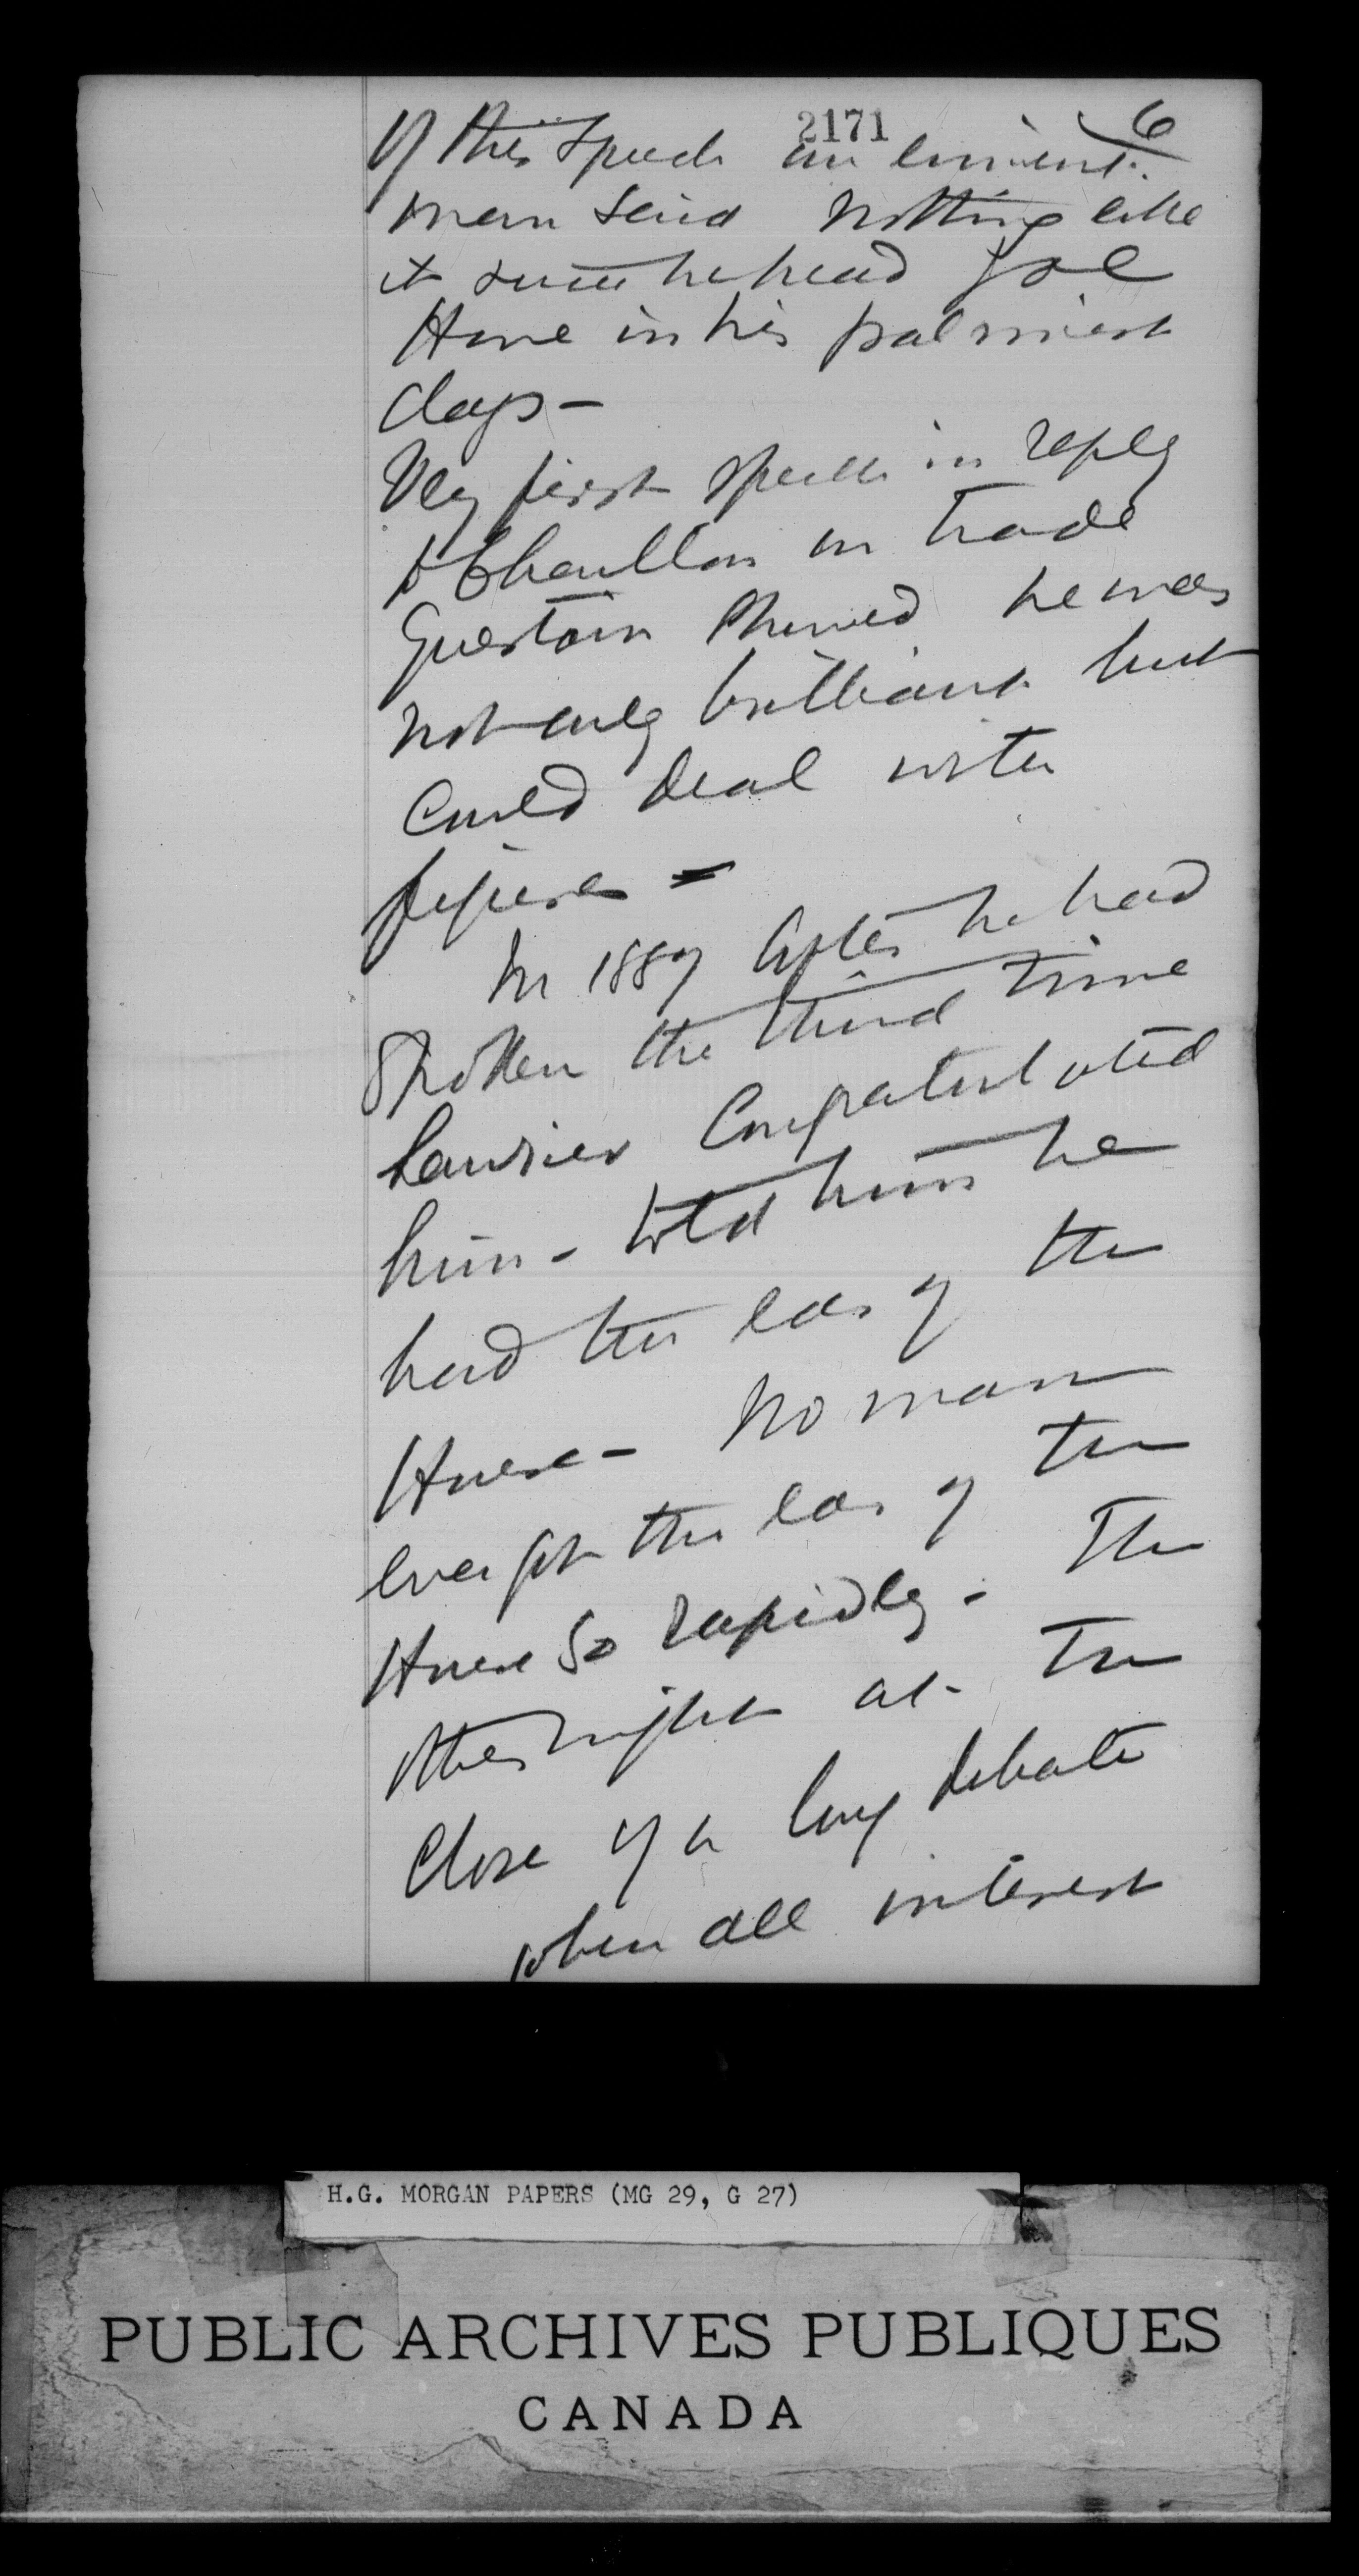 2171 6
Of this speech an eminent
man said nothing like
it since he heard Joe
Howe in his palmiest
days -
Very first speech in reply
to Charlton on trade
question showed he was
not only brilliant but
could deal with
figures -
In 1887 after he had
spoken the third time
Laurier congratulated
him - told him he
had the ear of the
House - No man
ever got the ear of the
House so rapidly - The
other night at the
close of a long debate
when all interest
H.G. MORGAN PAPERS (MG 29, G 27)
PUBLIC ARCHIVES PUBLIQUES
CANADA